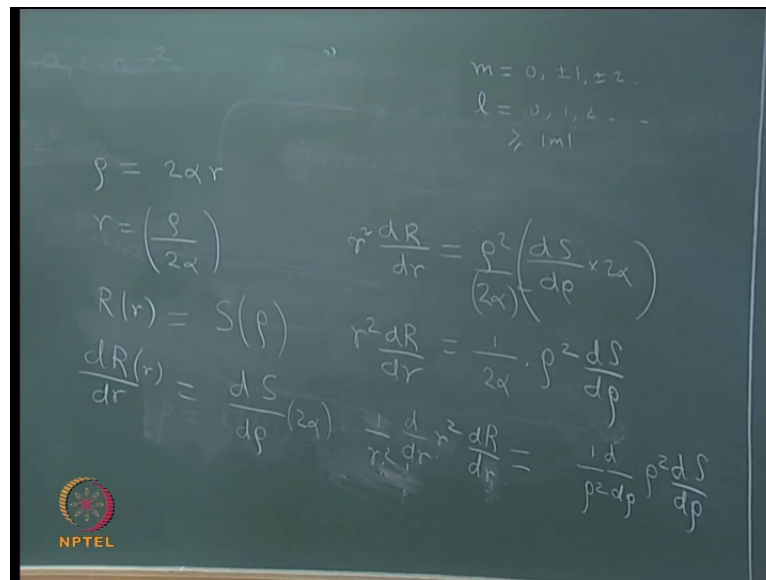 m = 0, ±1, ±2.
l = 0, 1, 2. . -
⩾ |m|
ρ = 2αr
r = (ρ / 2α)
R(r) = S(ρ)
dR(r)/dr = dS/dρ (2α)
r² dR/dr = ρ²/(2α)² (dS/dρ × 2α)
r² dR/dr = 1/2α · ρ² dS/dρ
1/r² d/dr r² dR/dr = 1/ρ² d/dρ ρ² dS/dρ
NPTEL